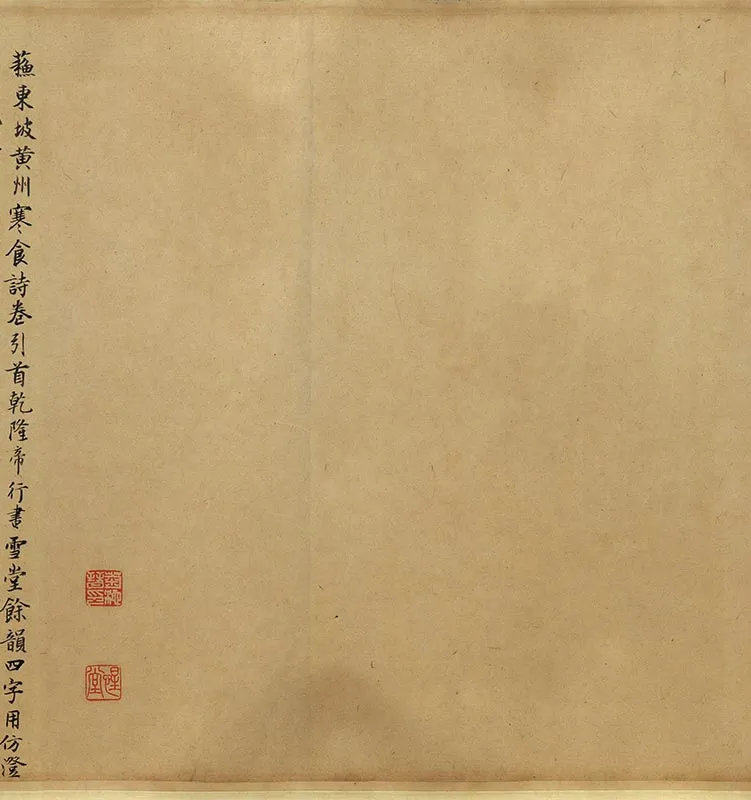 蘓東坡黄州寒食詩卷引首乾隆帝行書雪堂餘韻四字用仿澄